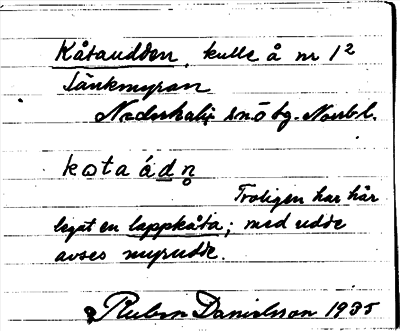 Kåtaudden, kulle å nr 1²
Tänkmyran
Nederkalix snö bg. Norrb l.
kota ádn̥
Troligen har här
legat en lappkåta; med udde
avses myrudde.
Ruben Danielsson 1935